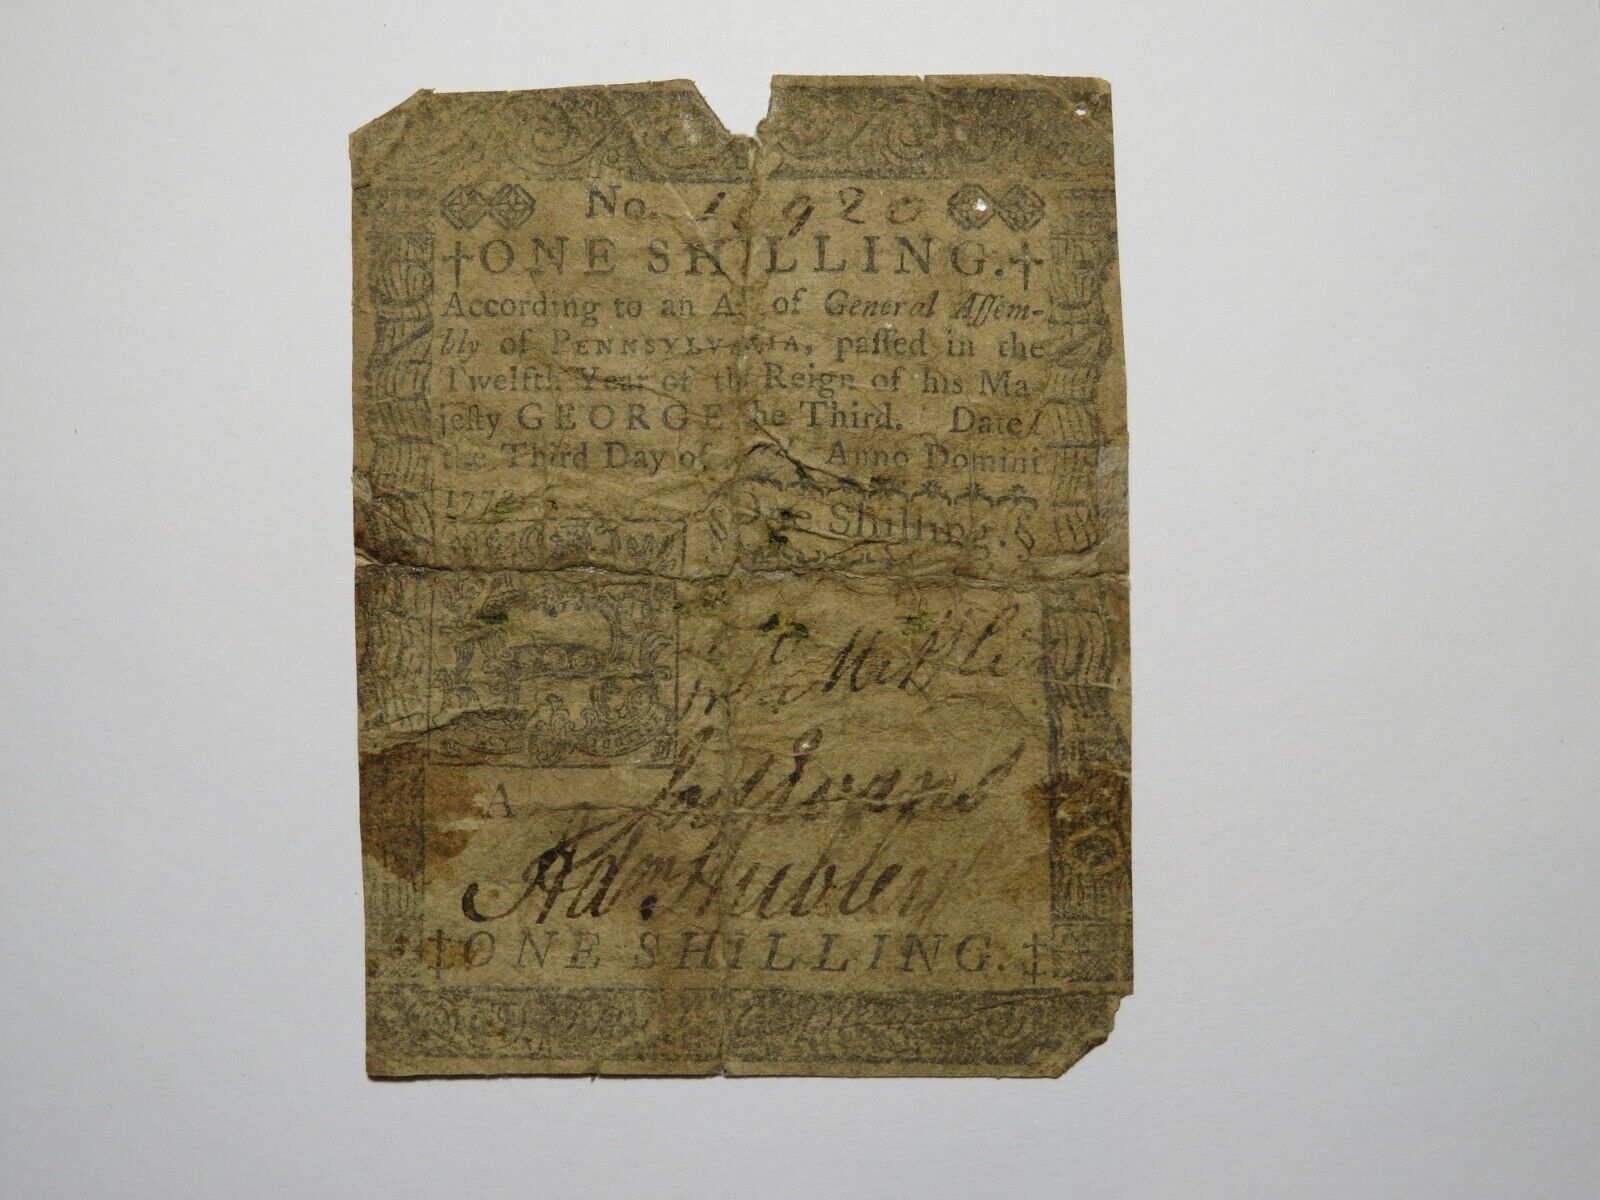 No. 1 920
ONE SHILLING.
According to an A of General Aſſem-
bly of PENNSYLVANIA, paſſed in the
Twelfth Year of th Reign of his Ma-
jeſty GEORGE he Third. Date
the Third Day of Anno Domini
1772.
One Shilling.
A
Evans
Adm Hubley
ONE SHILLING.